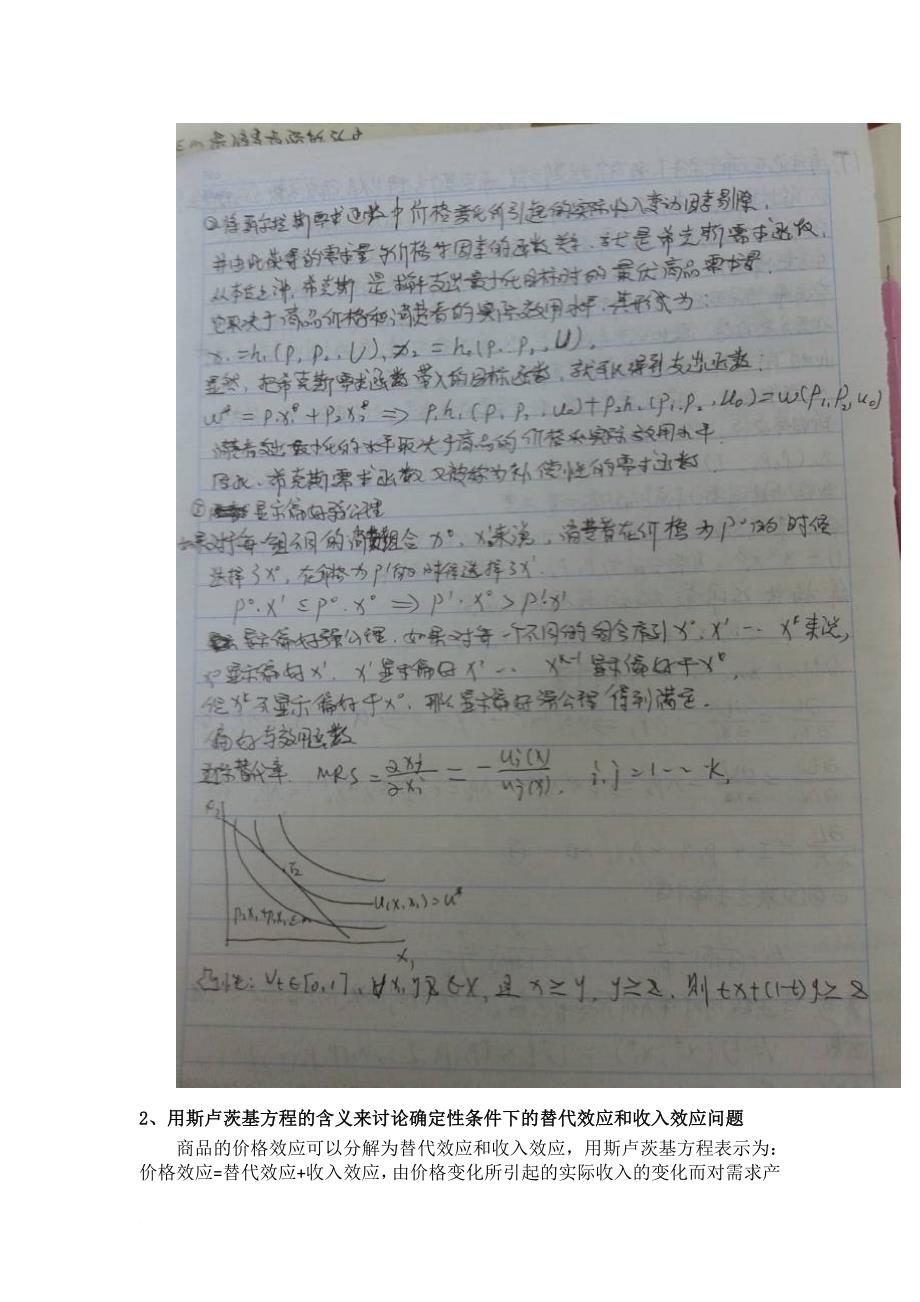 ②将马歇尔拉斯需求函数中价格变化所引起的实际收入变动因素剔除，
并由此获得的需求量与价格等因素的函数关系，就是希克斯需求函数，
从本质上讲，希克斯是求解支出最小化目标时的最优商品需求量
它取决于商品价格和消费者的实际效用水平，其形式为：
x₁=h₁(p₁ p₂, U), x₂=h₂(p₁. p₂, U).
显然，把希克斯需求函数带入的目标函数，就可以得到支出函数：
u*=p₁x₁⁰+p₂x₂⁰ ⇒ p₁h₁(p₁ p₂, u₀)+p₂h₂(p₁.p₂, u₀)=w(p₁,p₂,u₀)
消费支出最小化的水平取决于商品的价格和实际效用水平.
因此，希克斯需求函数又被称为补偿性的需求函数.
显示偏好弱公理
如果对于每一组不同的消费组合 x⁰, x'来说，消费者在价格为p⁰的时候
选择了x⁰，在价格为p'的时候选择了x'.
p⁰·x' ≤ p⁰·x⁰ ⇒ p'·x⁰ > p'·x'
显示偏好强公理，如果对每一个不同的组合序列x⁰, x', … xᵏ来说，
x⁰显示偏好x', x'显示偏好x' … xᵏ⁻¹显示偏好于xᵏ,
但xᵏ不显示偏好于x⁰，那么显示偏好强公理得到满足.
偏好与效用函数
边际替代率. MRS = ∂xj/∂xi = - ui(x)/uj(x). i,j=1…k,
u(x₁x₂)=u*
p₁x₁+p₂x₂≤m
x₁
凸性：∀t∈[0,1], ∀x,y,z∈X, 且 x≥y, y≥z, 则 tx+(1-t)y≥z
2、用斯卢茨基方程的含义来讨论确定性条件下的替代效应和收入效应问题
商品的价格效应可以分解为替代效应和收入效应，用斯卢茨基方程表示为：
价格效应=替代效应+收入效应，由价格变化所引起的实际收入的变化而对需求产